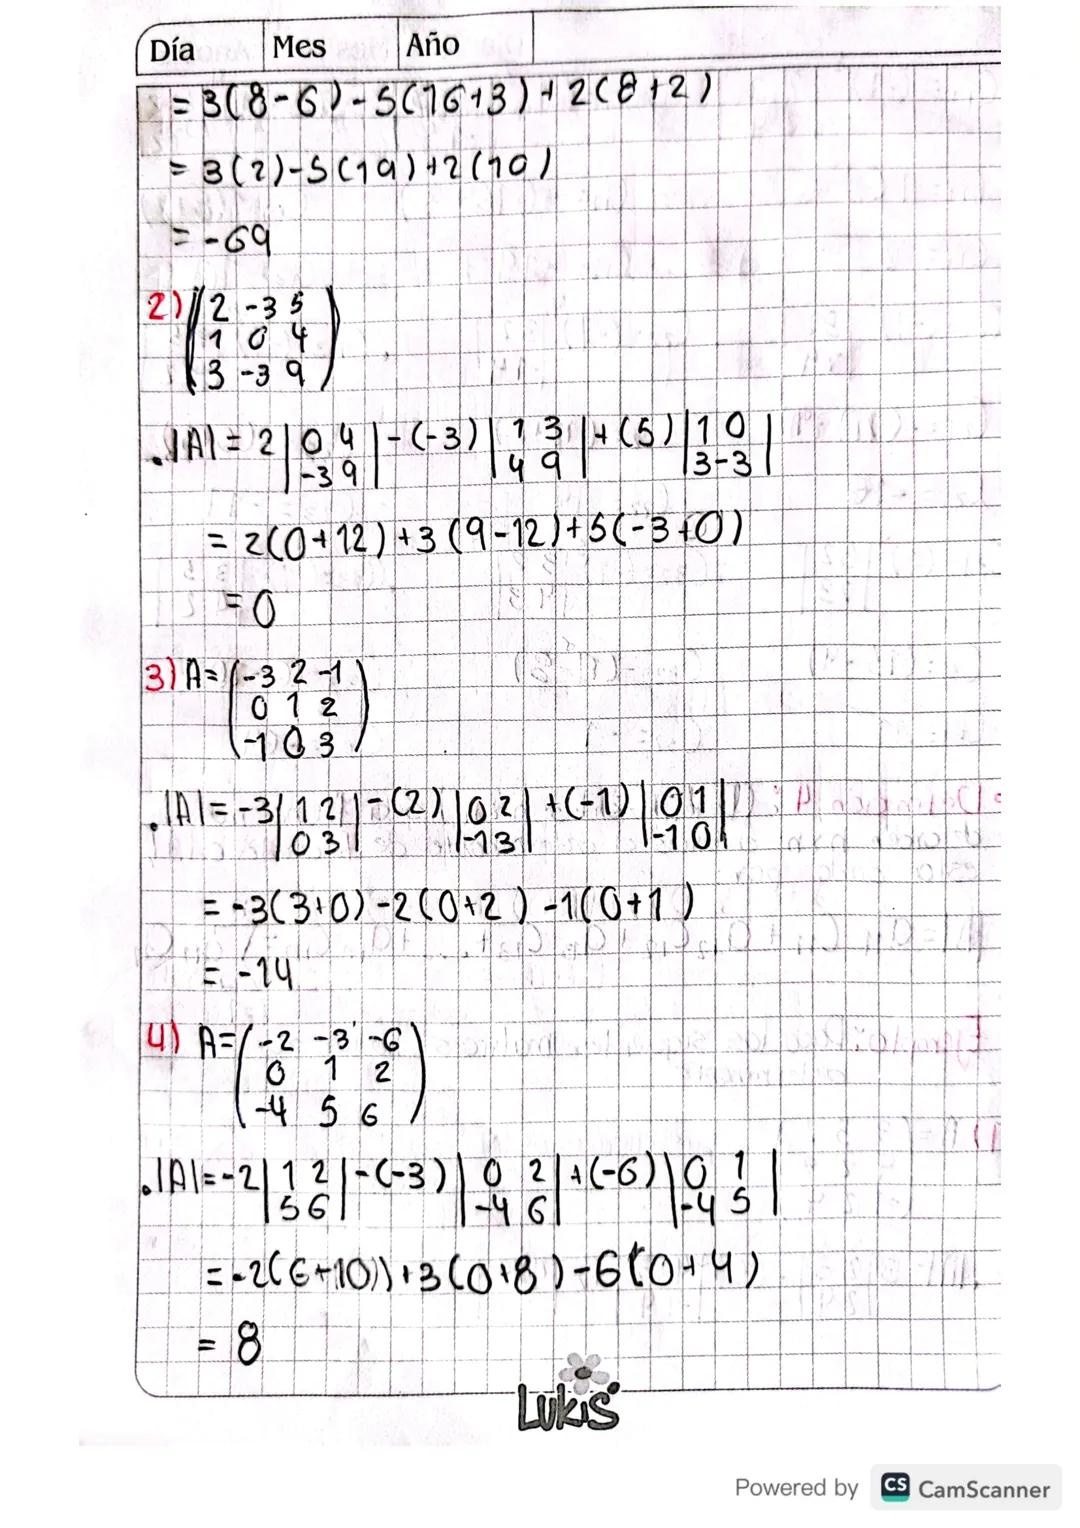 Día Mes Año
= 3(8-6)-5(16+3)+2(8+2)
= 3(2)-5(19)+2(10)
= -69
2) (2 -3 5
1 0 4
3 -3 9)
.|A| = 2|0 4|-(-3)|1 3|+(5)|1 0|
|-3 9| |4 9| |3-3|
= 2(0+12)+3(9-12)+5(-3+0)
=0
3) A=(-3 2 -1
0 1 2
-1 0 3)
.|A|=-3|1 2|-(2)|0 2|+(-1)|0 1|
|0 3| |-1 3| |-1 0|
= -3(3+0)-2(0+2)-1(0+1)
= -14
4) A=(-2 -3 -6
0 1 2
-4 5 6)
.|A|=-2|1 2|-(-3)|0 2|+(-6)|0 1|
|5 6| |-4 6| |-4 5|
=-2(6-10))+3(0+8)-6(0+4)
= 8
Lukis
Powered by CS CamScanner